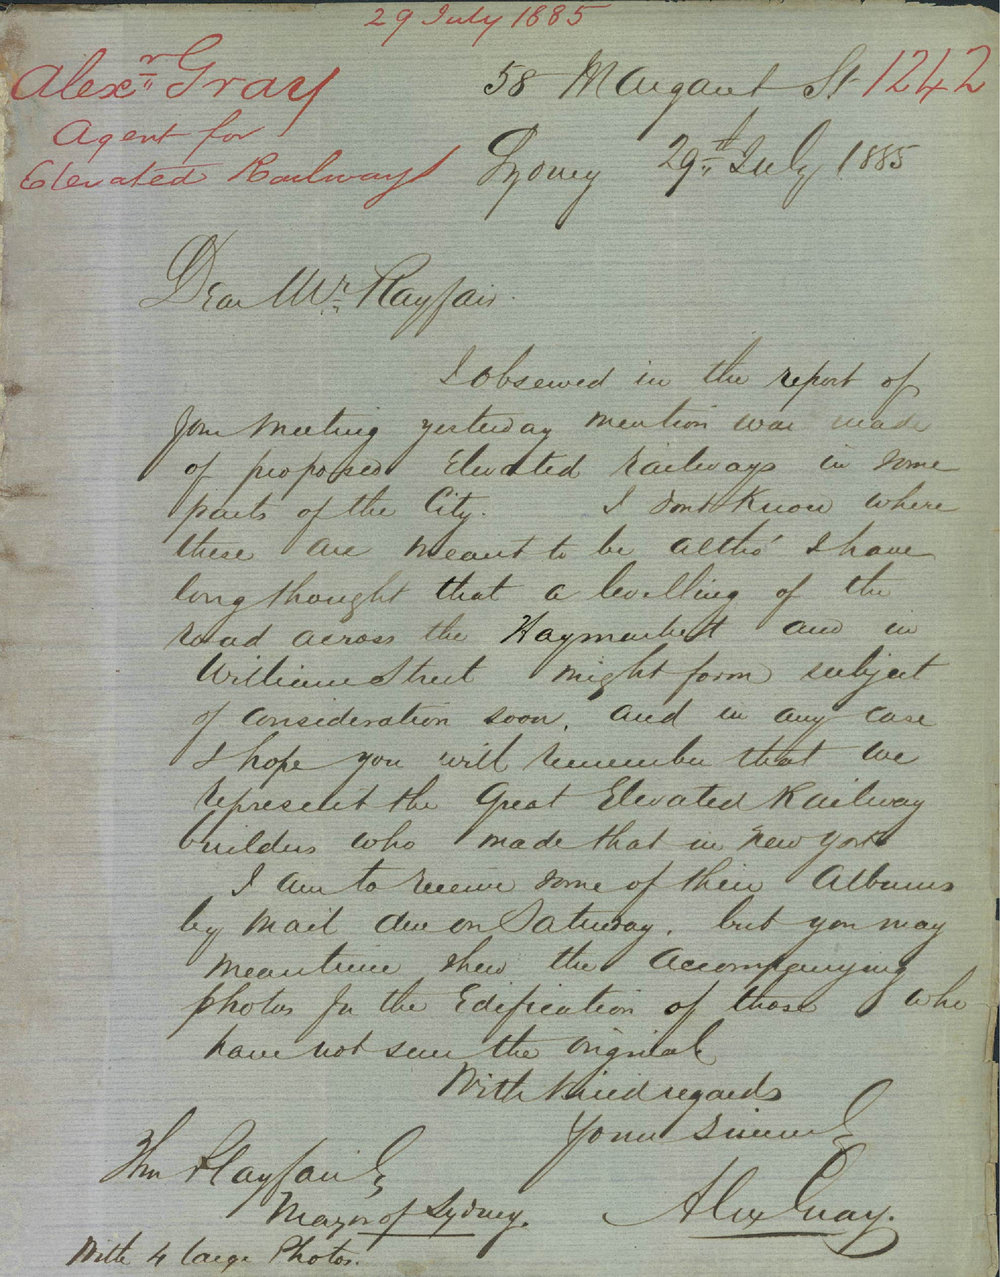 29 July 1885
Alexr Gray
Agent for
Elevated Railways
1242
58 Margaret St
Sydney 29th July 1885
Dear Mr Playfair
I observed in the report of
your meeting yesterday mention was made
of proposed Elevated railways in some
parts of the City. I dont know where
these are meant to be altho' I have
long thought that a levelling of the
road across the Haymarket and in
William Street might form subject
of consideration soon, and in any case
I hope you will remember that we
represent the Great Elevated Railway
builders who made that in New York
I am to receive some of their Albums
by mail due on Saturday, but you may
meantime shew the accompanying
photos for the Edification of those who
have not seen the original
With kind regards
Yours Sincerely
Alex Gray.
Thos Playfair Esq
Mayor of Sydney.
With 4 large Photos.